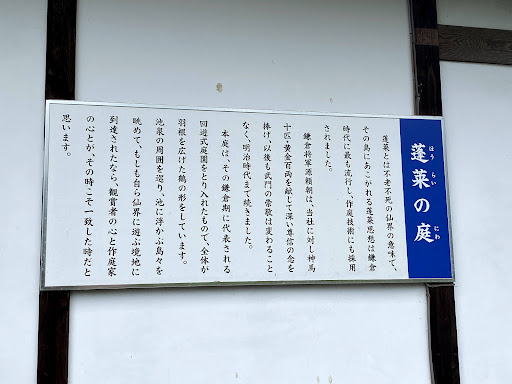 蓬莱の庭
ほうらい にわ
蓬莱とは不老不死の仙界の意味で、
その島にあこがれる蓬莱思想は鎌倉
時代に最も流行し、作庭技術にも採用
されました。
鎌倉将軍源頼朝は、当社に対し神馬
十匹・黄金百両を献じて深い尊信の念を
捧げ、以後も武門の崇敬は変わること
なく、明治時代まで続きました。
本庭は、その鎌倉期に代表される
回遊式庭園をとり入れたもので、全体が
羽根を広げた鶴の形をしています。
池泉の周囲を巡り、池に浮かぶ島々を
眺めて、もしも自ら仙界に遊ぶ境地に
到達されたなら、観賞者の心と作庭家
の心とが、その時こそ一致した時だと
思います。